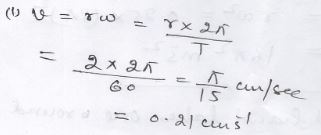 (1) v = rw = r × 2π / T
= 2 × 2π / 60 = π / 15 cm/sec
= 0.21 cms⁻¹